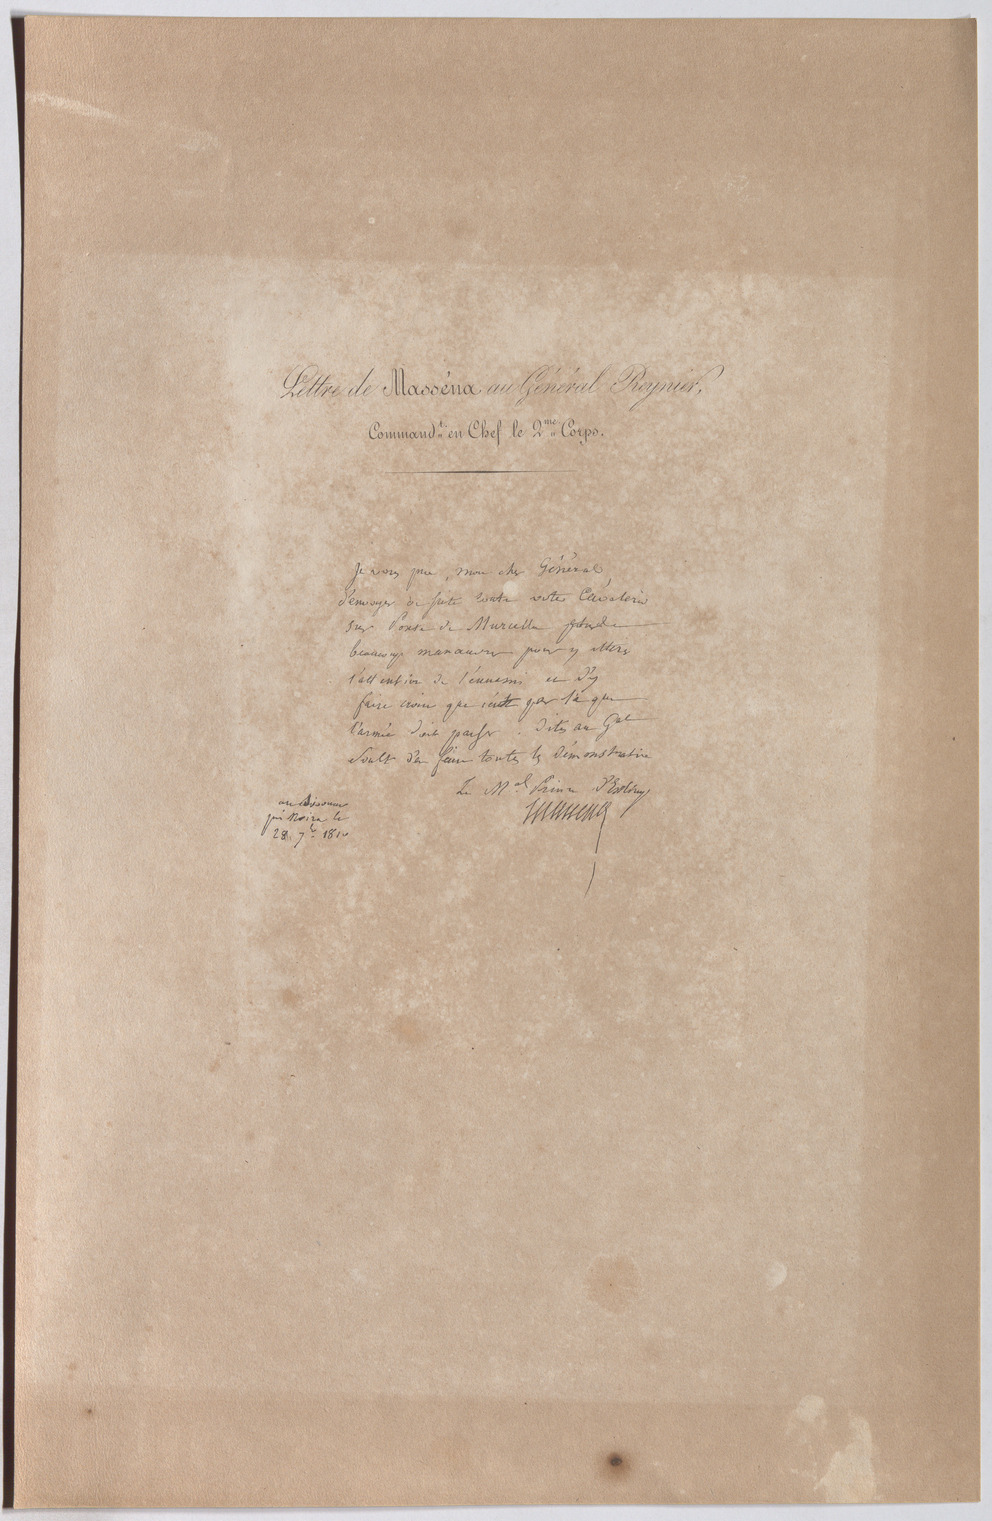 Lettre de Masséna au Général Reynier,
Command.t en Chef le 2.me Corps.
Je vous prie, mon cher Général,
d'envoyer de suite toute votre Cavalerie
sur de Murcella
beaucoup manœuvrer pour y attirer
l'attention de l'ennemi et d'y
faire croire que c'est par là que
l'armée doit passer. Dites au Gal
Soult d'en faire toutes les démonstration
Le Mal Prince d'Essling
Massena
au Bivouac
Moira le
28. 7.bre 1810